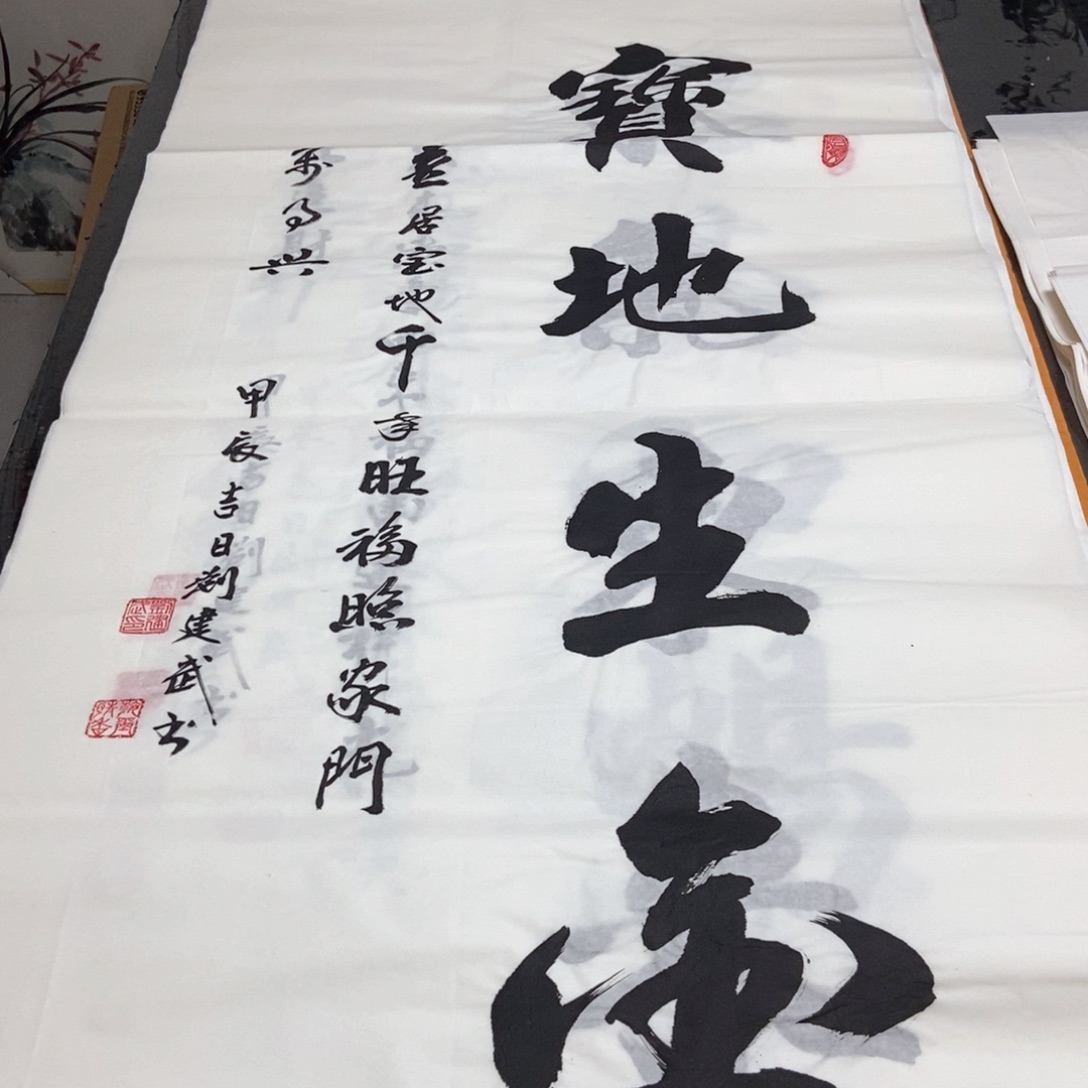 寶地生金
宜居宝地千年旺福照家門
萬事興
甲辰吉日劉建武书